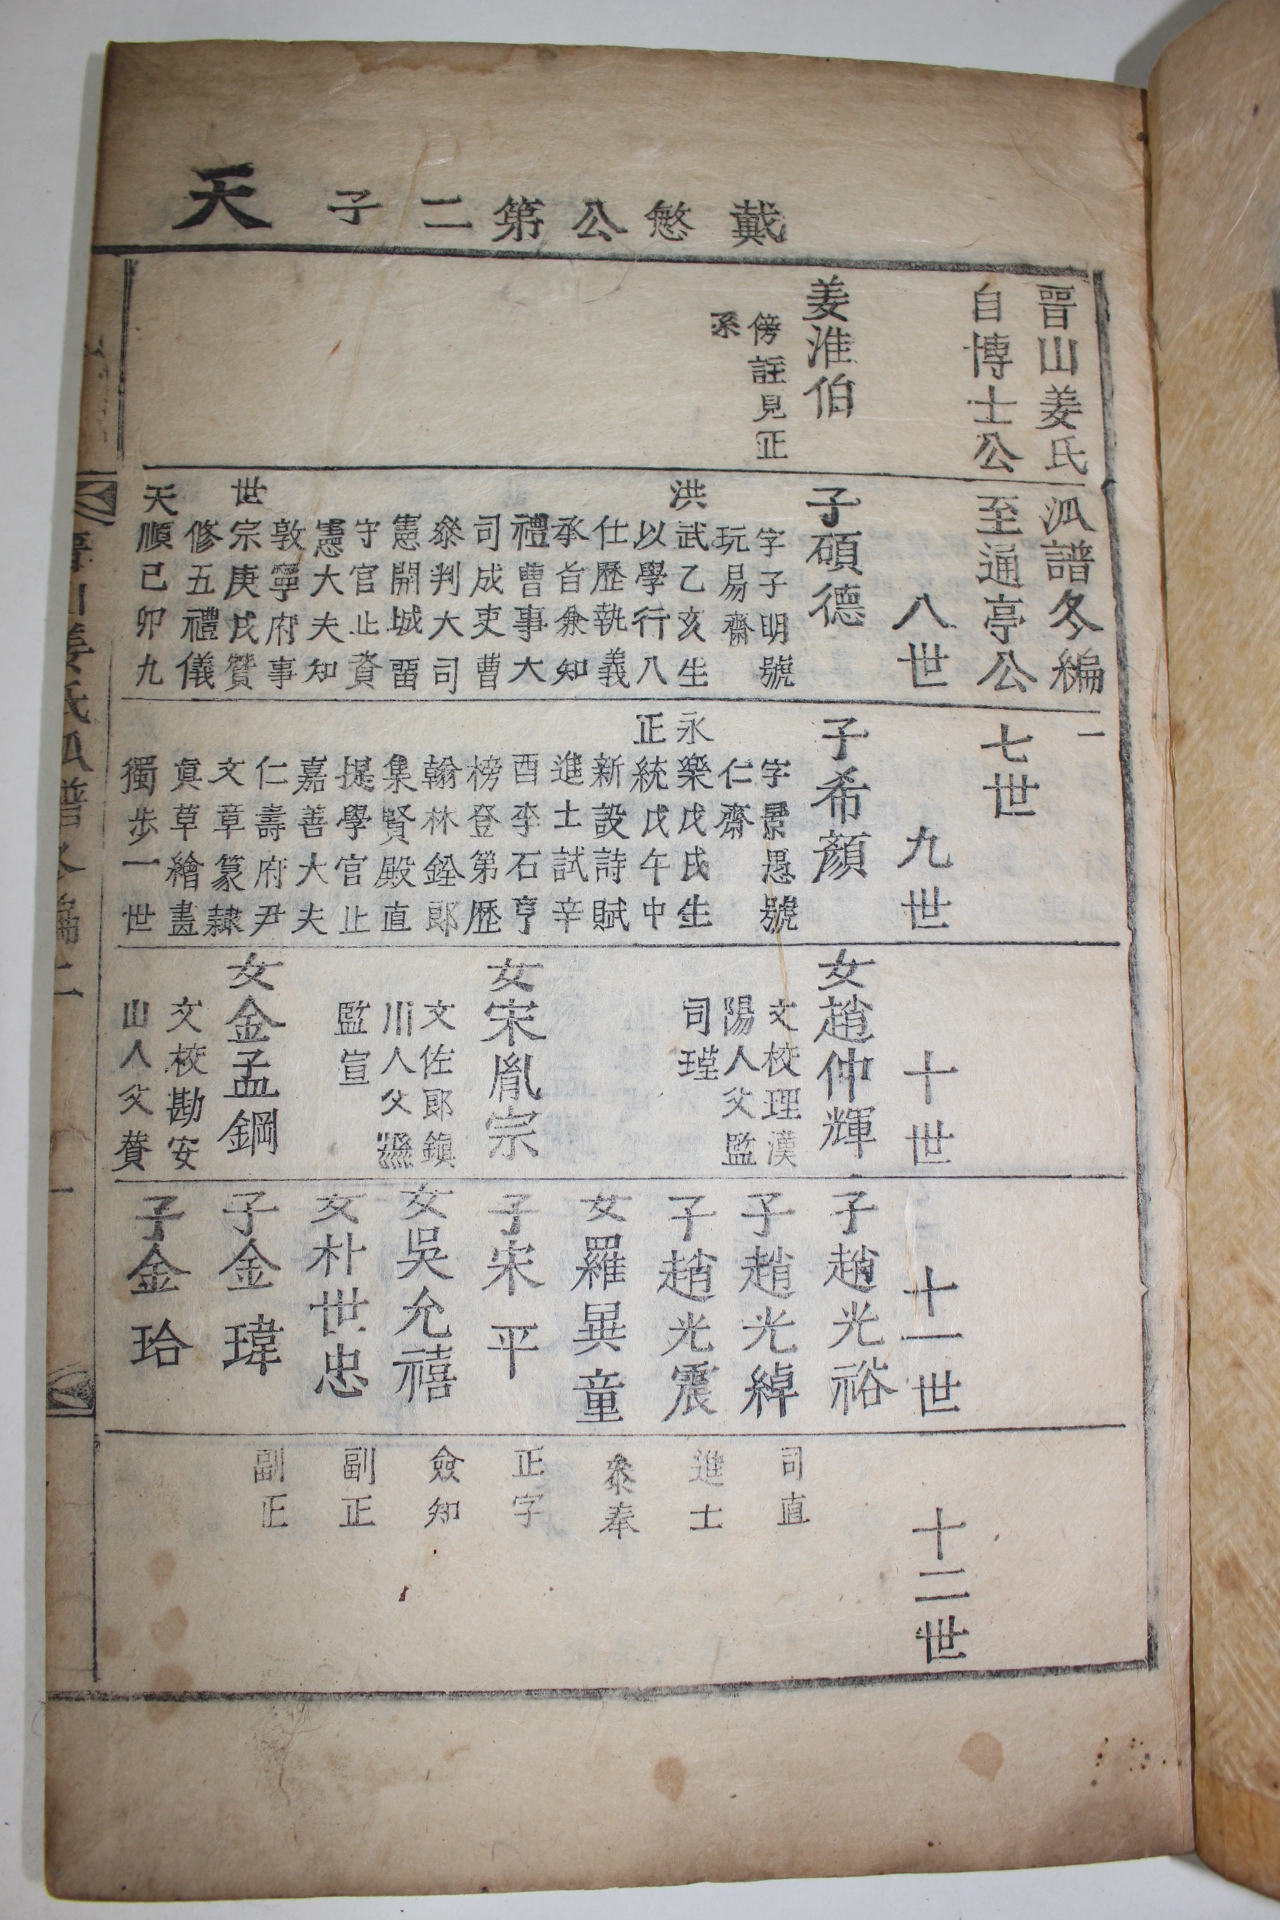 戴慜公第二子 天
晉山姜氏派譜冬編一
自博士公至通亭公 七世
八世
九世
十世
十一世
十二世
姜淮伯
傍註見正
系
子碩德
字子明號
玩易齋
洪武乙亥生
以學行八
仕歷執義
承旨兼知
禮曹事大
司成吏曹
叅判大司
憲開城留
守官止資
憲大夫知
敦寧府事
世宗庚戌贊
修五禮儀
天順己卯九
子希顏
字景愚號
仁齋
永樂戊戌生
正統戊午中
新設詩賦
進士試辛
酉李石亨
榜登第歷
翰林銓郎
集賢殿直
提學官止
嘉善大夫
仁壽府尹
文章篆隷
眞草繪畫
獨步一世
女趙仲輝
文校理漢
陽人父監
司瑾
女宋胤宗
文佐郎鎭
川人父縣
監宣
女金孟鋼
文校勘安
山人父賛
子趙光裕
司直
子趙光綽
進士
子趙光震
叅奉
女羅異童
正字
子宋平
僉知
女吳允禧
副正
女朴世忠
副正
子金瑋
子金珆
晉山姜氏派譜冬編二 一